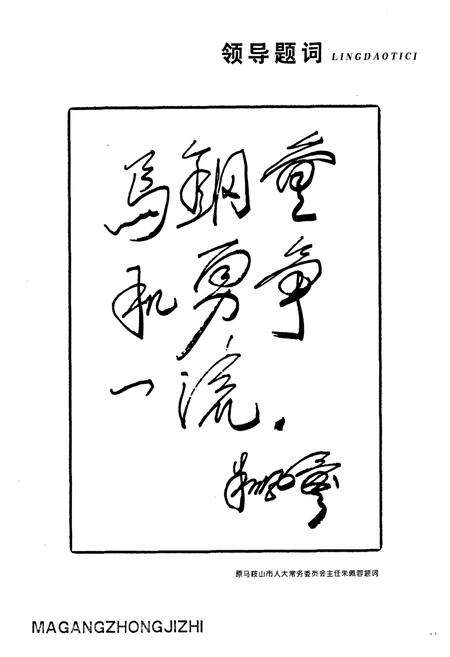 领导题词 LINGDAOTICI
马钢重
机勇争
一流.
原马鞍山市人大常务委员会主任朱佩蓉题词
MAGANGZHONGJIZHI